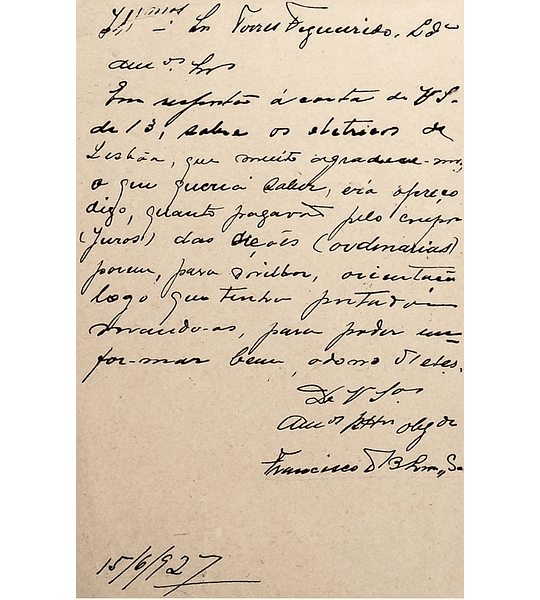 Snrs Torres Figueirido, Lda
Amos. Snrs
Em resposta á carta de V S.
de 13, sobre os eletricos de
Lisbôa, que muito agradece-mos,
o que queria saber, era o preço
digo, quanto pagava pelo cupon
(Juros) das ações (ordenarias)
porem, para milhor, orientação
logo que tenha portador
mando-as, para poder in-
for-mar bem, o dono d'eles.
De V Sas
Amos obgdo
Francisco
15/6/927